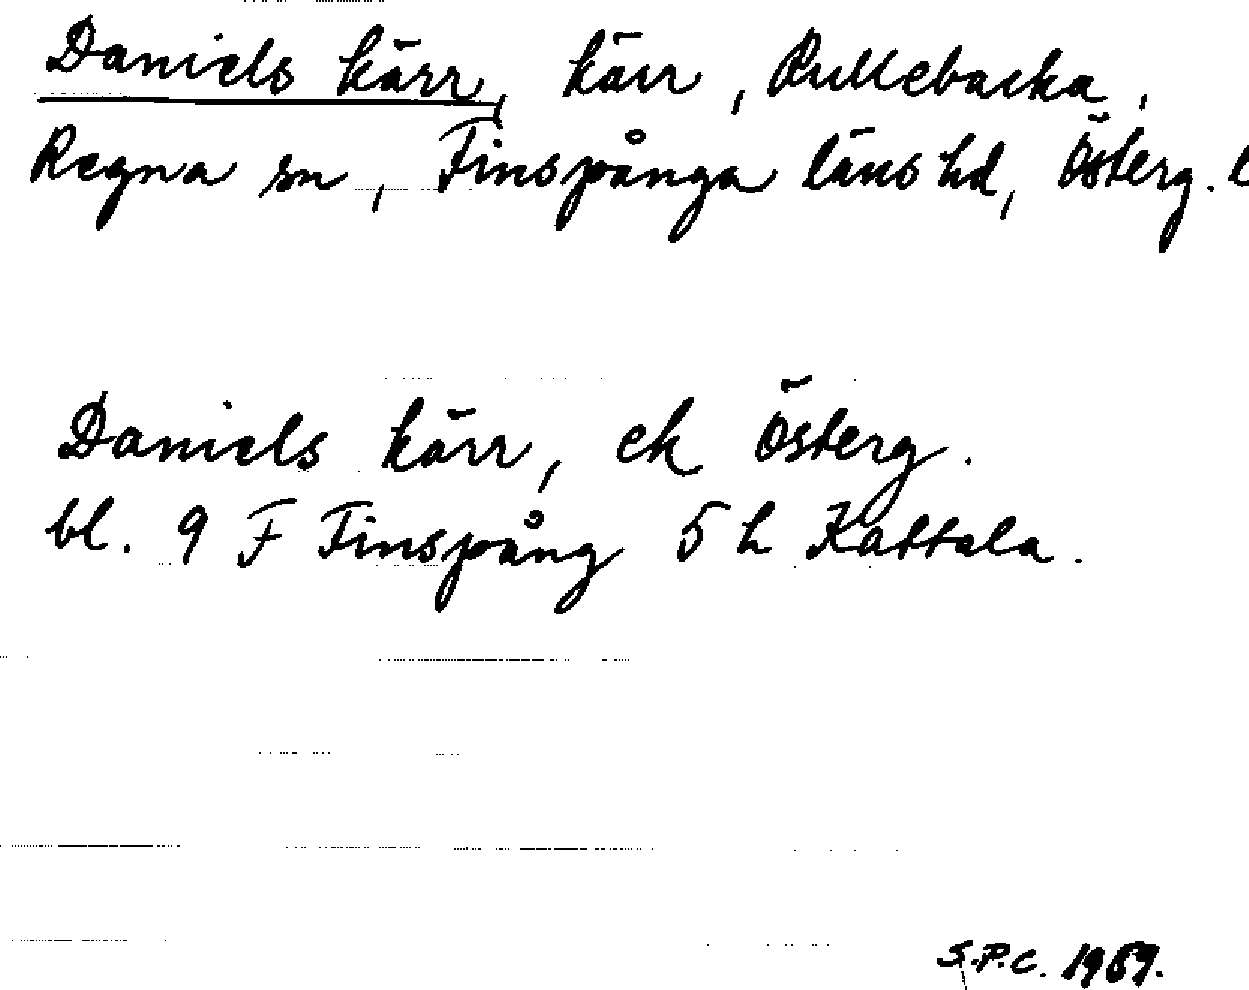 Daniels kärr, kärr, Rullebacka,
Regna sn, Finspånga läns hd, Österg. l
Daniels kärr, ek Österg.
bl. 9 F Finspång 5 h Kattala.
S.P.C. 1969.